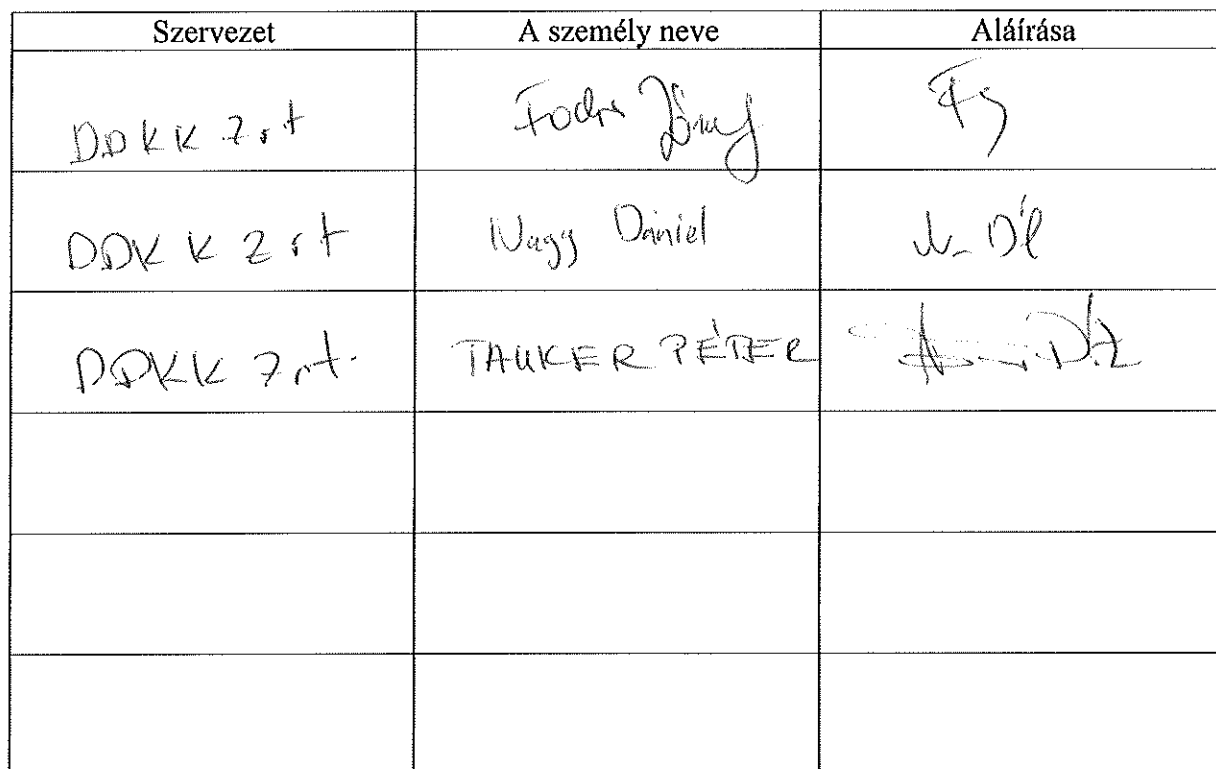 Szervezet A személy neve Aláírása
DDKK Zrt Fodor József
DDKK Zrt Nagy Dániel N. Dl
DDKK Zrt. TAUKER PÉTER